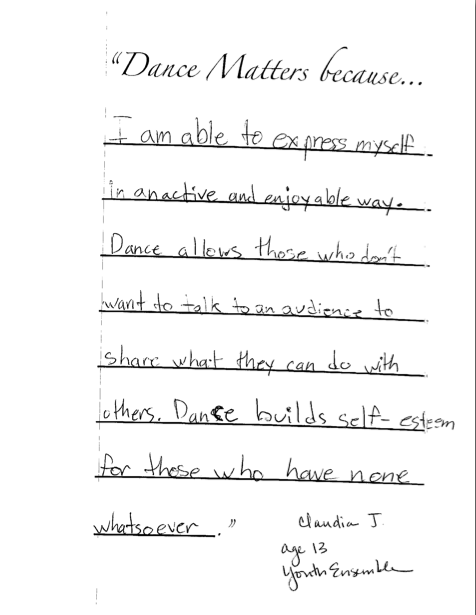 "Dance Matters because...
I am able to express myself
in an active and enjoyable way.
Dance allows those who don't
want to talk to an audience to
share what they can do with
others. Dance builds self-esteem
for those who have none
whatsoever."
Claudia J.
age 13
Youth Ensemble